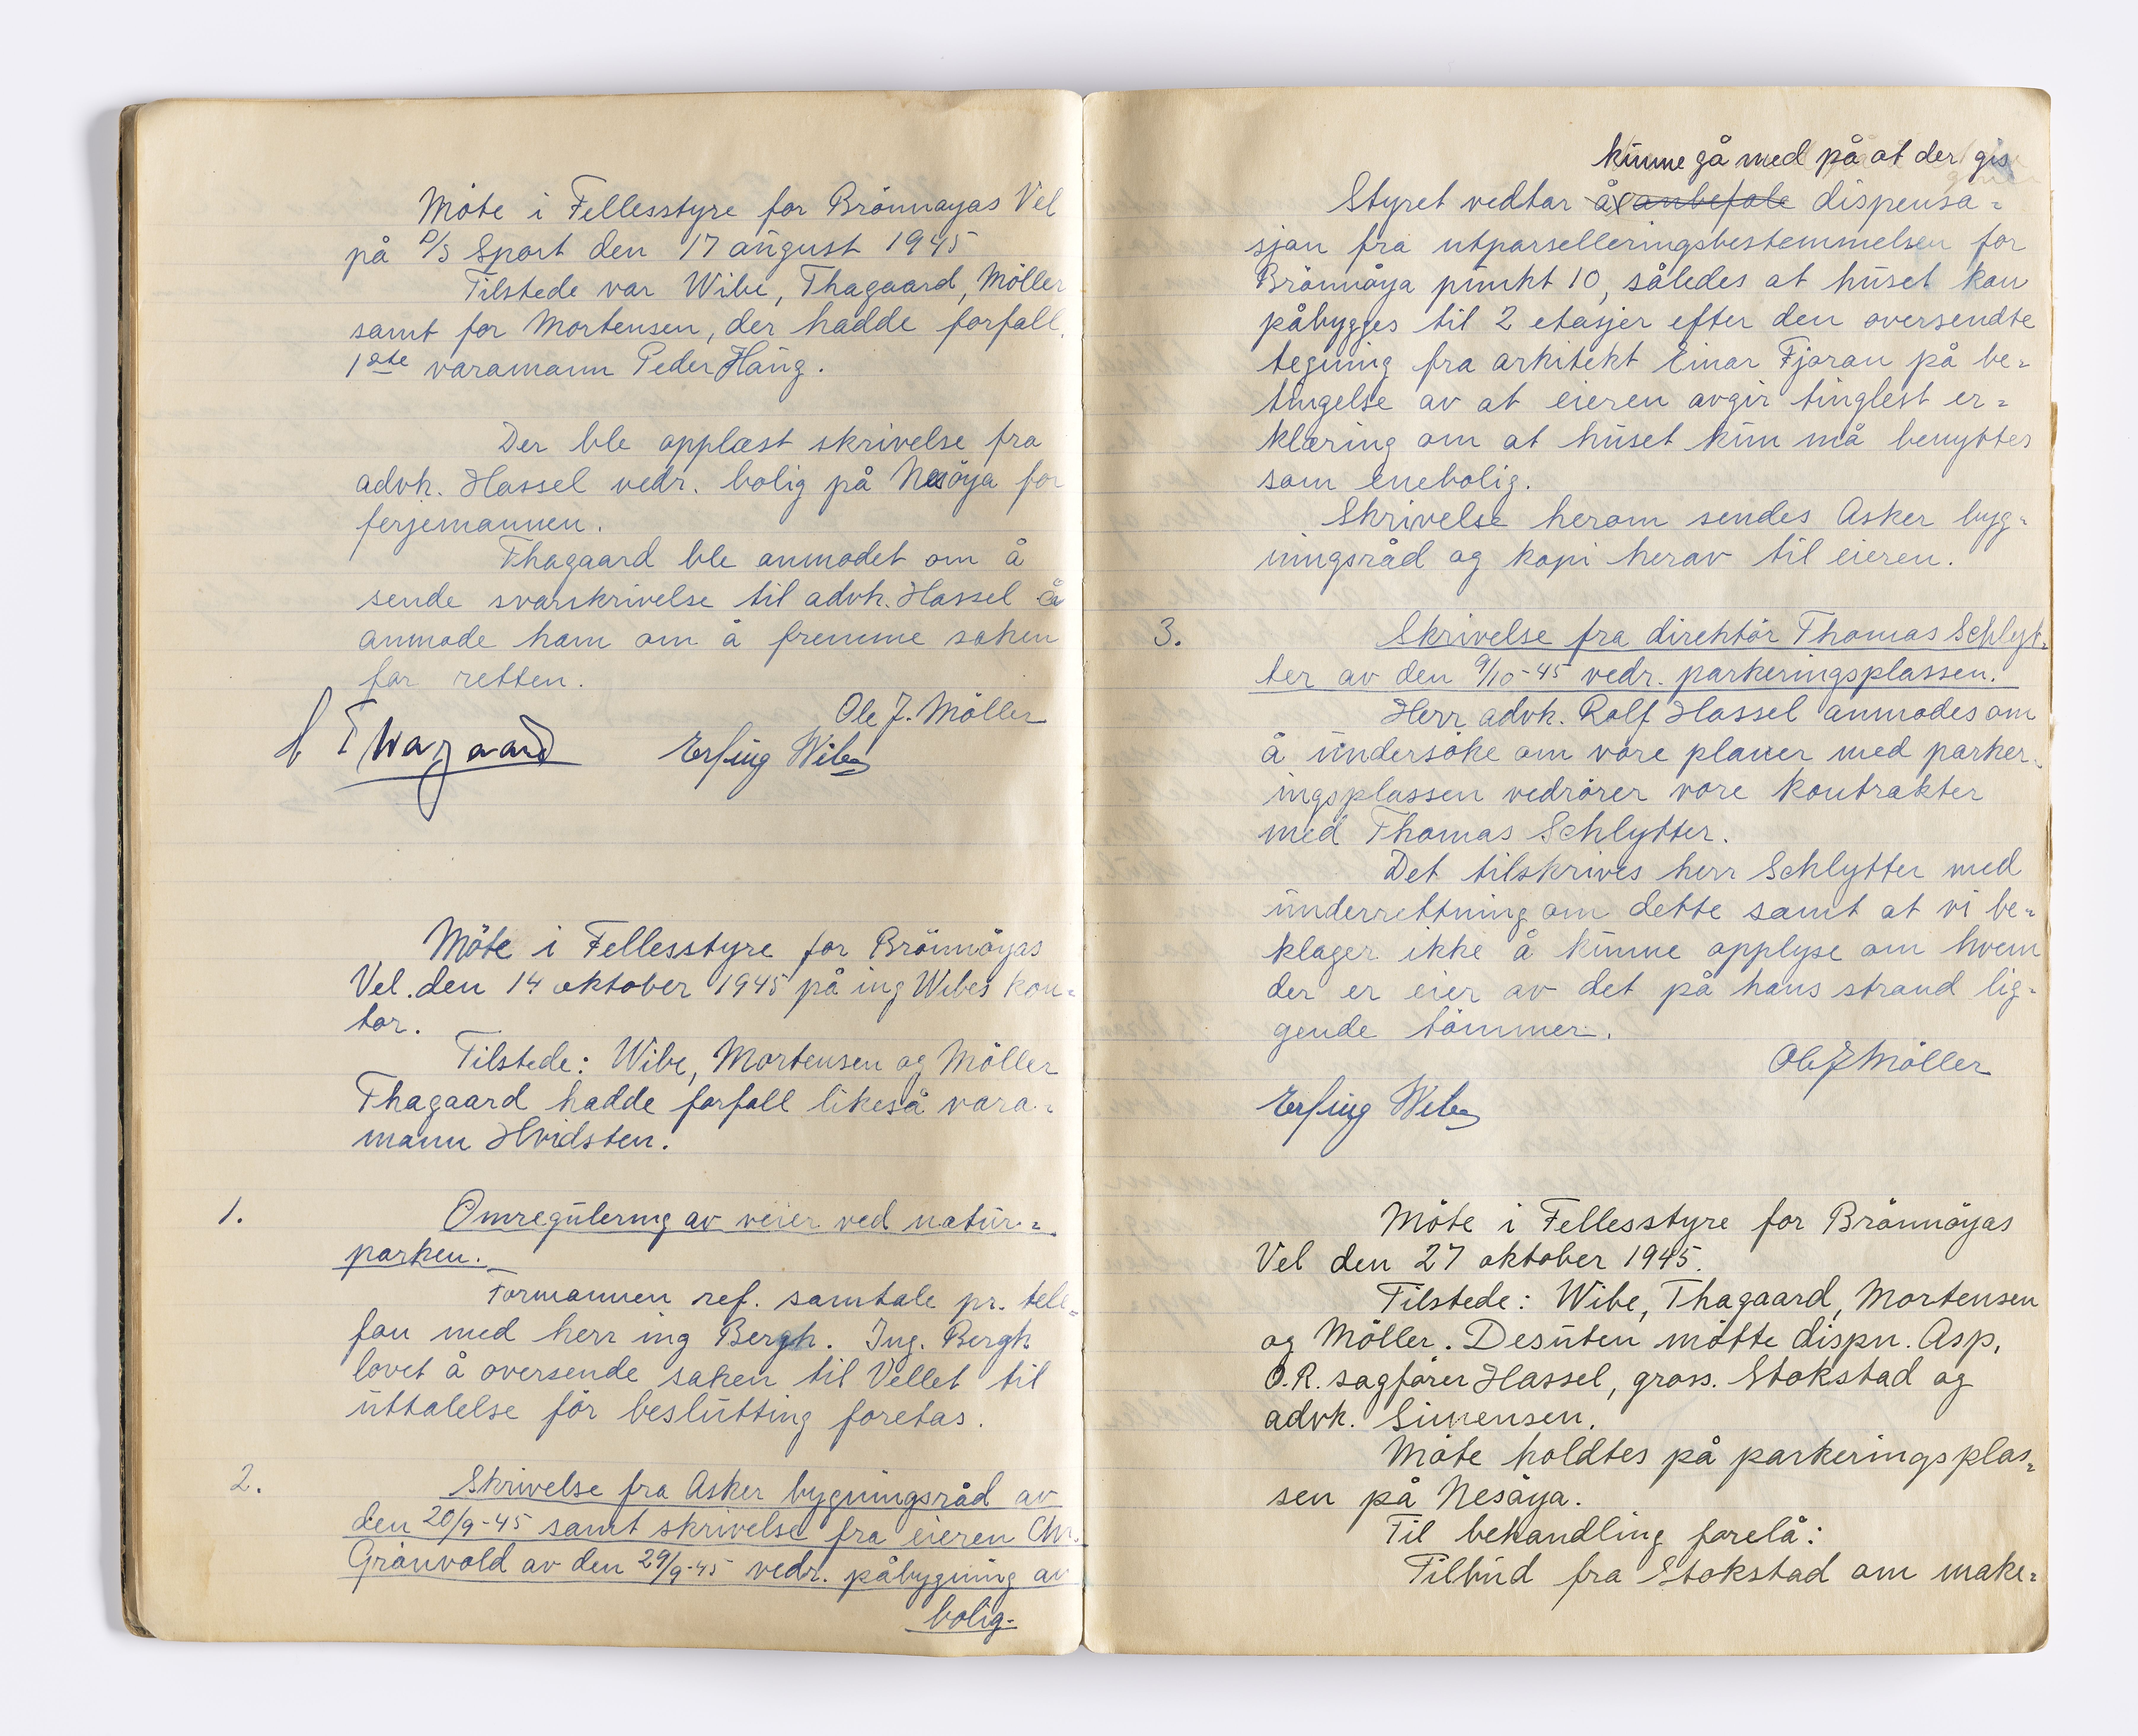 Möte i Fellesstyre for Brönnøyas Vel
på D/S Sport den 17 august 1945
Tilstede var Wibe, Thagaard, Möller
samt for Mortensen, der hadde forfall,
1ste varamann Peder Haug.
Der ble opplæst skrivelse fra
advk. Hassel vedr. bolig på Nesöya for
ferjemannen.
Thagaard ble anmodet om å
sende svarskrivelse til advk. Hassel å
anmode ham om å fremme saken
for retten.
Ole J. Möller
Thagaard
Erling Wibe
Möte i Fellesstyre for Brönnöyas
Vel. den 14 oktober 1945 på ing Wibes kon=
tor.
Tilstede: Wibe, Mortensen og Möller
Thagaard hadde forfall likeså vara=
mann Hvidsten.
1.
Omregulering av veier ved natur=
parken.
Formannen ref. samtale pr. tele=
fon med herr ing Bergh. Ing. Bergh
lovet å oversende saken til Vellet til
uttalelse för beslutting foretas.
2.
Skrivelse fra Asker bygningsråd av
den 20/9-45 samt skrivelse fra eieren Chr.
Grönvold av den 29/9-45 vedr. påbygning av
bolig-
kunne gå med på at der gis
Styret vedtar å anbefale dispensa=
sjon fra utparselleringsbestemmelsen for
Brönnöya punkt 10, således at huset kan
påbygges til 2 etasjer efter den oversendte
tegning fra arkitekt Einar Fjoran på be=
tingelse av at eieren avgir tinglest er=
klæring om at huset kun må benyttes
som enebolig.
Skrivelse herom sendes Asker byg=
ningsråd og kopi herav til eieren.
3.
Skrivelse fra direktör Thomas Schlyt=
ter av den 9/10-45 vedr. parkeringsplassen.
Herr advk. Rolf Hassel anmodes om
å undersöke om våre planer med parker=
ingsplassen vedrörer våre kontrakter
med Thomas Schlytter.
Det tilskrives herr Schlytter med
underrettning om dette samt at vi be=
klager ikke å kunne opplyse om hvem
der er eier av det på hans strand lig=
gende tömmer.
Ole J Möller
Erling Wibe
Möte i Fellesstyre for Brönnöyas
Vel den 27 oktober 1945.
Tilstede: Wibe, Thagaard, Mortensen
og Möller. Desuten mötte dispn. Asp,
O.R. sagförer Hassel, gross. Stokstad og
advk. Simensen.
Möte holdtes på parkeringsplas=
sen på Nesöya.
Til behandling forelå:
Tilbud fra Stokstad om make=